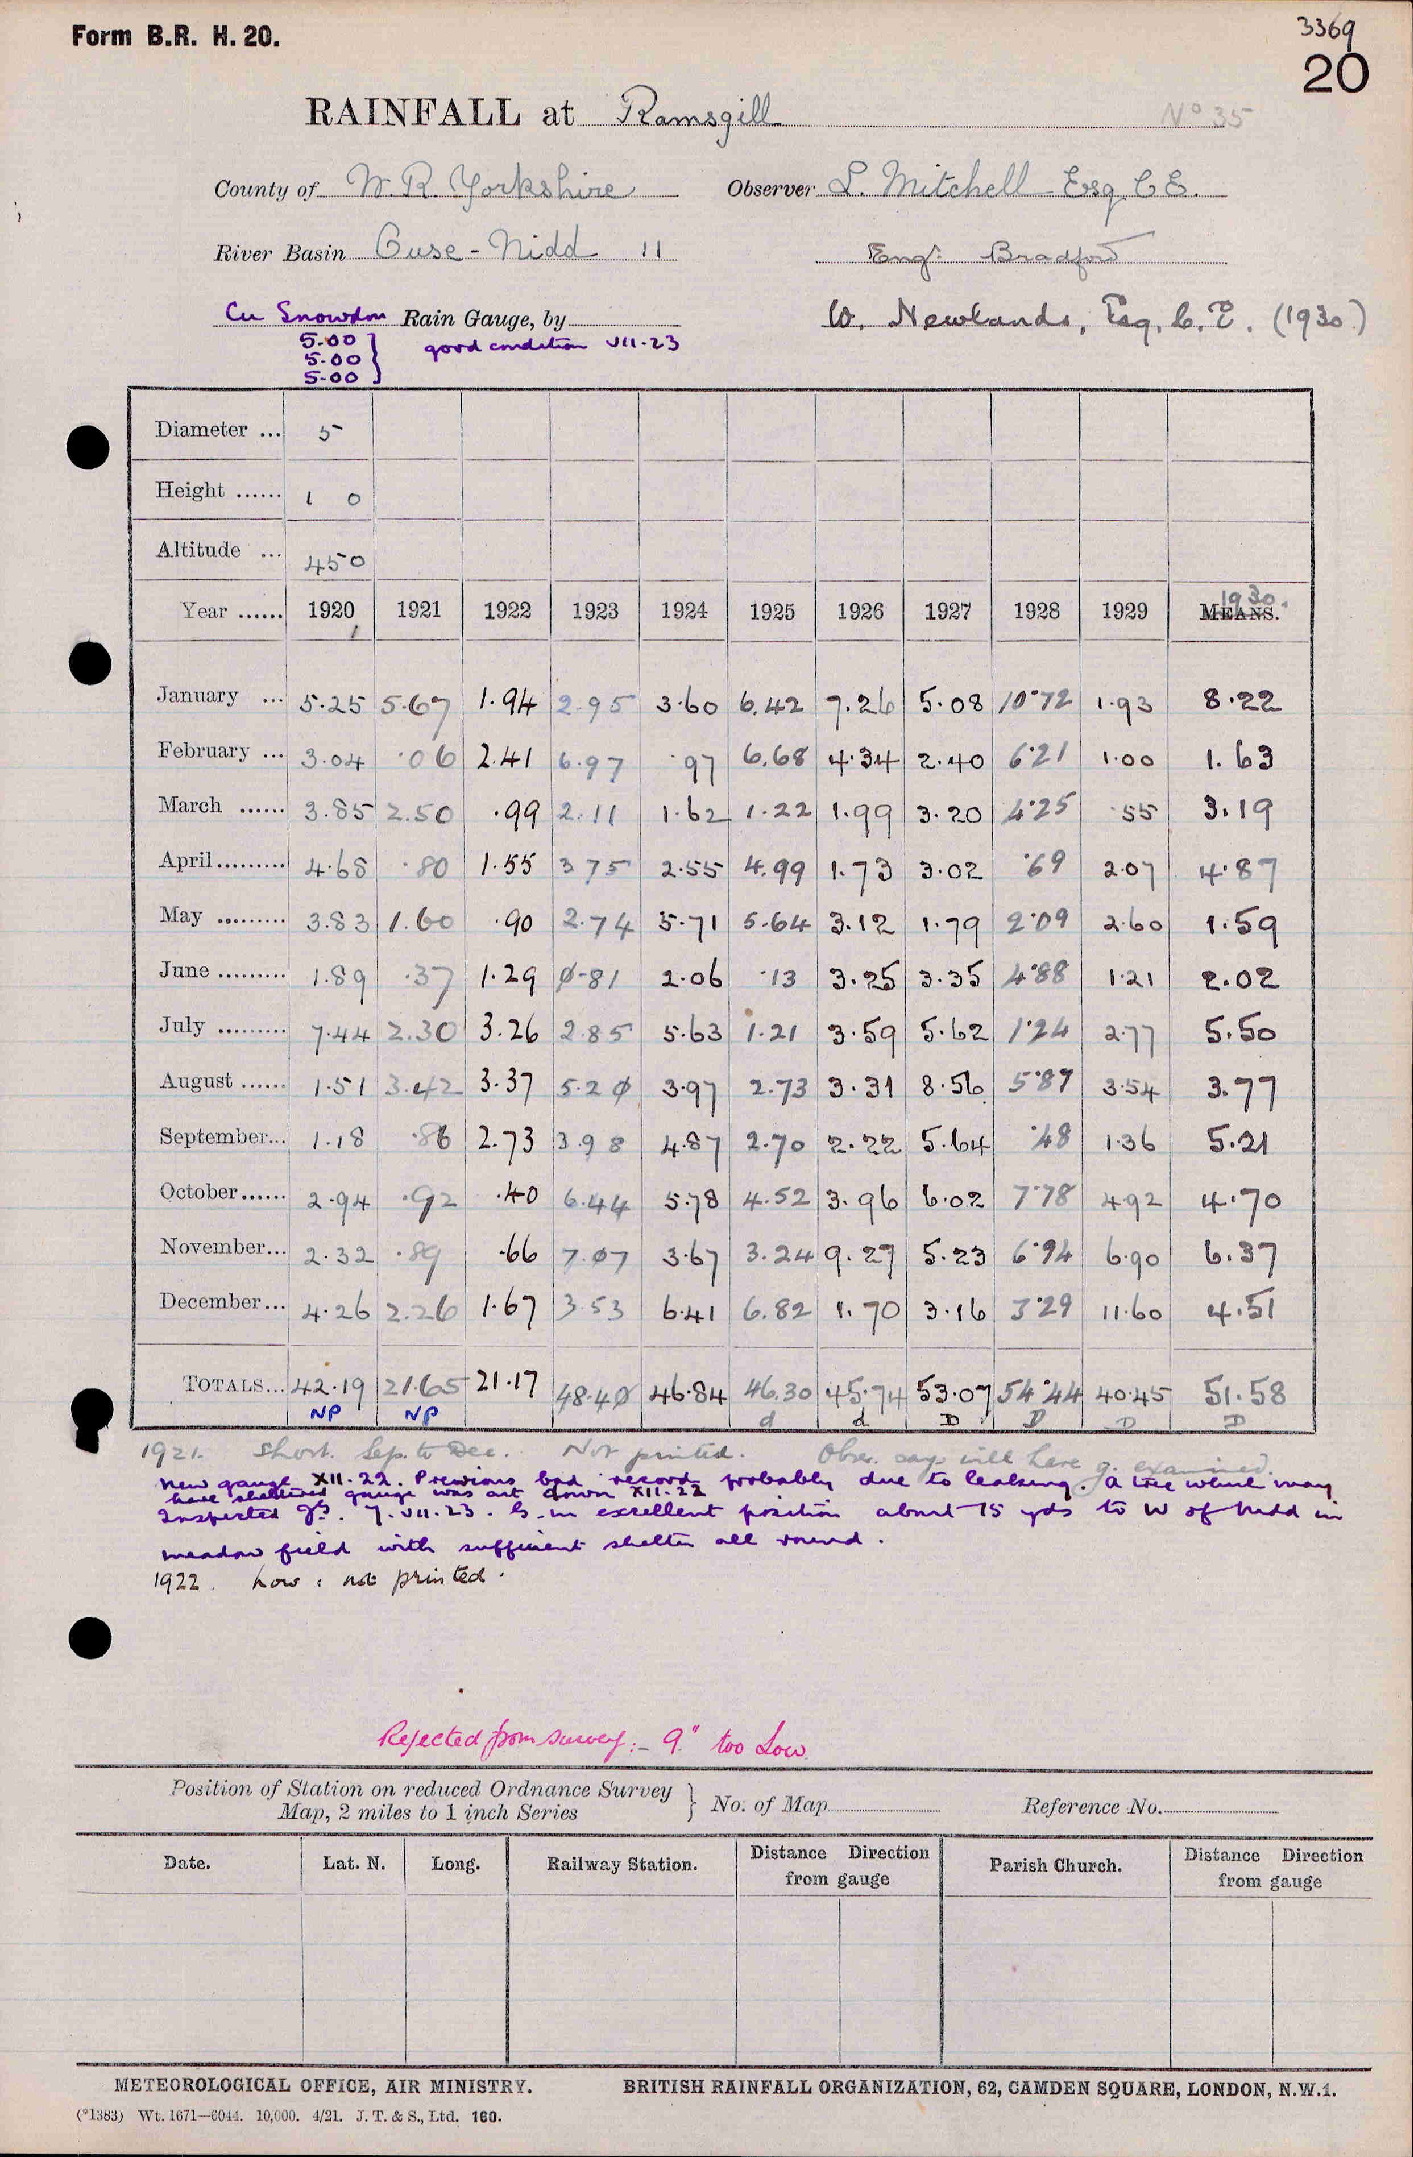 Form B.R. H. 20.
3369
20
RAINFALL at Ramsgill
Nº 35
County of W. R. Yorkshire Observer L. Mitchell Esq C E.
River Basin Ouse - Nidd 11 Engr. Bradford
Cu Snowdon Rain Gauge, by W. Newlands, Esq. C. E. (1930)
5.00
5.00
5.00
good condition VII.23
Diameter ... 5
Height ...... 1 0
Altitude ... 450
Year ...... 1920 1921 1922 1923 1924 1925 1926 1927 1928 1929 MEANS. 1930.
January ... 5.25 5.67 1.94 2.95 3.60 6.42 7.26 5.08 10.72 1.93 8.22
February ... 3.04 .06 2.41 6.97 .97 6.68 4.34 2.40 6.21 1.00 1.63
March ...... 3.85 2.50 .99 2.11 1.62 1.22 1.99 3.20 4.25 .55 3.19
April......... 4.68 .80 1.55 3.75 2.55 4.99 1.73 3.02 .69 2.07 4.87
May ......... 3.83 1.60 .90 2.74 5.71 5.64 3.12 1.79 2.09 2.60 1.59
June ......... 1.89 .37 1.29 0.81 2.06 .13 3.25 3.35 4.88 1.21 2.02
July ......... 7.44 2.30 3.26 2.85 5.63 1.21 3.59 5.62 1.24 2.77 5.50
August ...... 1.51 3.42 3.37 5.20 3.97 2.73 3.31 8.56 5.87 3.54 3.77
September... 1.18 .86 2.73 3.98 4.87 2.70 2.22 5.64 .48 1.36 5.21
October...... 2.94 .92 .40 6.44 5.78 4.52 3.96 6.02 7.78 4.92 4.70
November... 2.32 .89 .66 7.07 3.67 3.24 9.27 5.23 6.94 6.90 6.37
December... 4.26 2.26 1.67 3.53 6.41 6.82 1.70 3.16 3.29 11.60 4.51
TOTALS... 42.19 21.65 21.17 48.40 46.84 46.30 45.74 53.07 54.44 40.45 51.58
NP NP d d D D D D
1921. Short. Sep. to Dec. Not printed. Obsr. says will have g. examined.
New gauge XII.22. Previous bad record probably due to leaking. A tree which may
have sheltered gauge was cut down XII.22
Inspected 7. VII.23. G. in excellent position about 15 yds to W of Nidd in
meadow field with sufficient shelter all round.
1922. Low: not printed.
Rejected from Survey:- 9." too Low
Position of Station on reduced Ordnance Survey
Map, 2 miles to 1 inch Series } No. of Map Reference No.
Date. Lat. N. Long. Railway Station. Distance Direction from gauge Parish Church. Distance Direction from gauge
METEOROLOGICAL OFFICE, AIR MINISTRY. BRITISH RAINFALL ORGANIZATION, 62, CAMDEN SQUARE, LONDON, N.W.1.
(*1383) Wt. 1671—6044. 10,000. 4/21. J. T. & S., Ltd. 160.